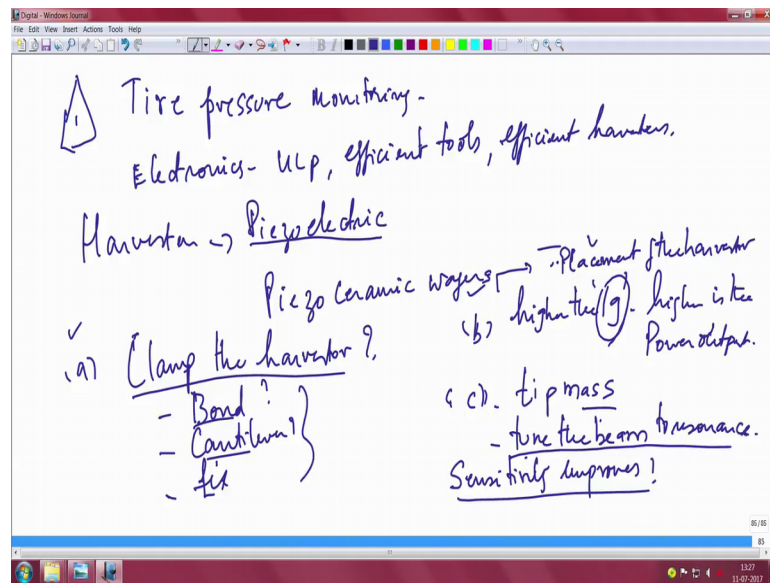 Digital - Windows Journal
File Edit View Insert Actions Tools Help
1
Tire pressure monitoring.
Electronics - ULP, efficient tools, efficient harvesters.
Harvester -> Piezoelectric
Piezo Ceramic wafers
Placement of the harvestor
(b) higher the 'g'. higher is the
Power output.
(a) Clamp the harvestor ?
- Bond ?
- Cantilever ?
- fix
(c). tip mass
- tune the beam to resonance.
Sensitivity improves ?
85/85
85
13:27
11-07-2017